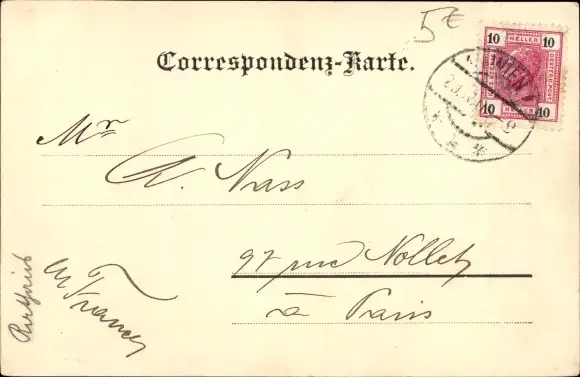 5€
10 HELLER 10
OESTERR. POST
10 10
WIEN
Correspondenz-Karte.
Mr
A. Nass
97 rue Nollet
à Paris
France